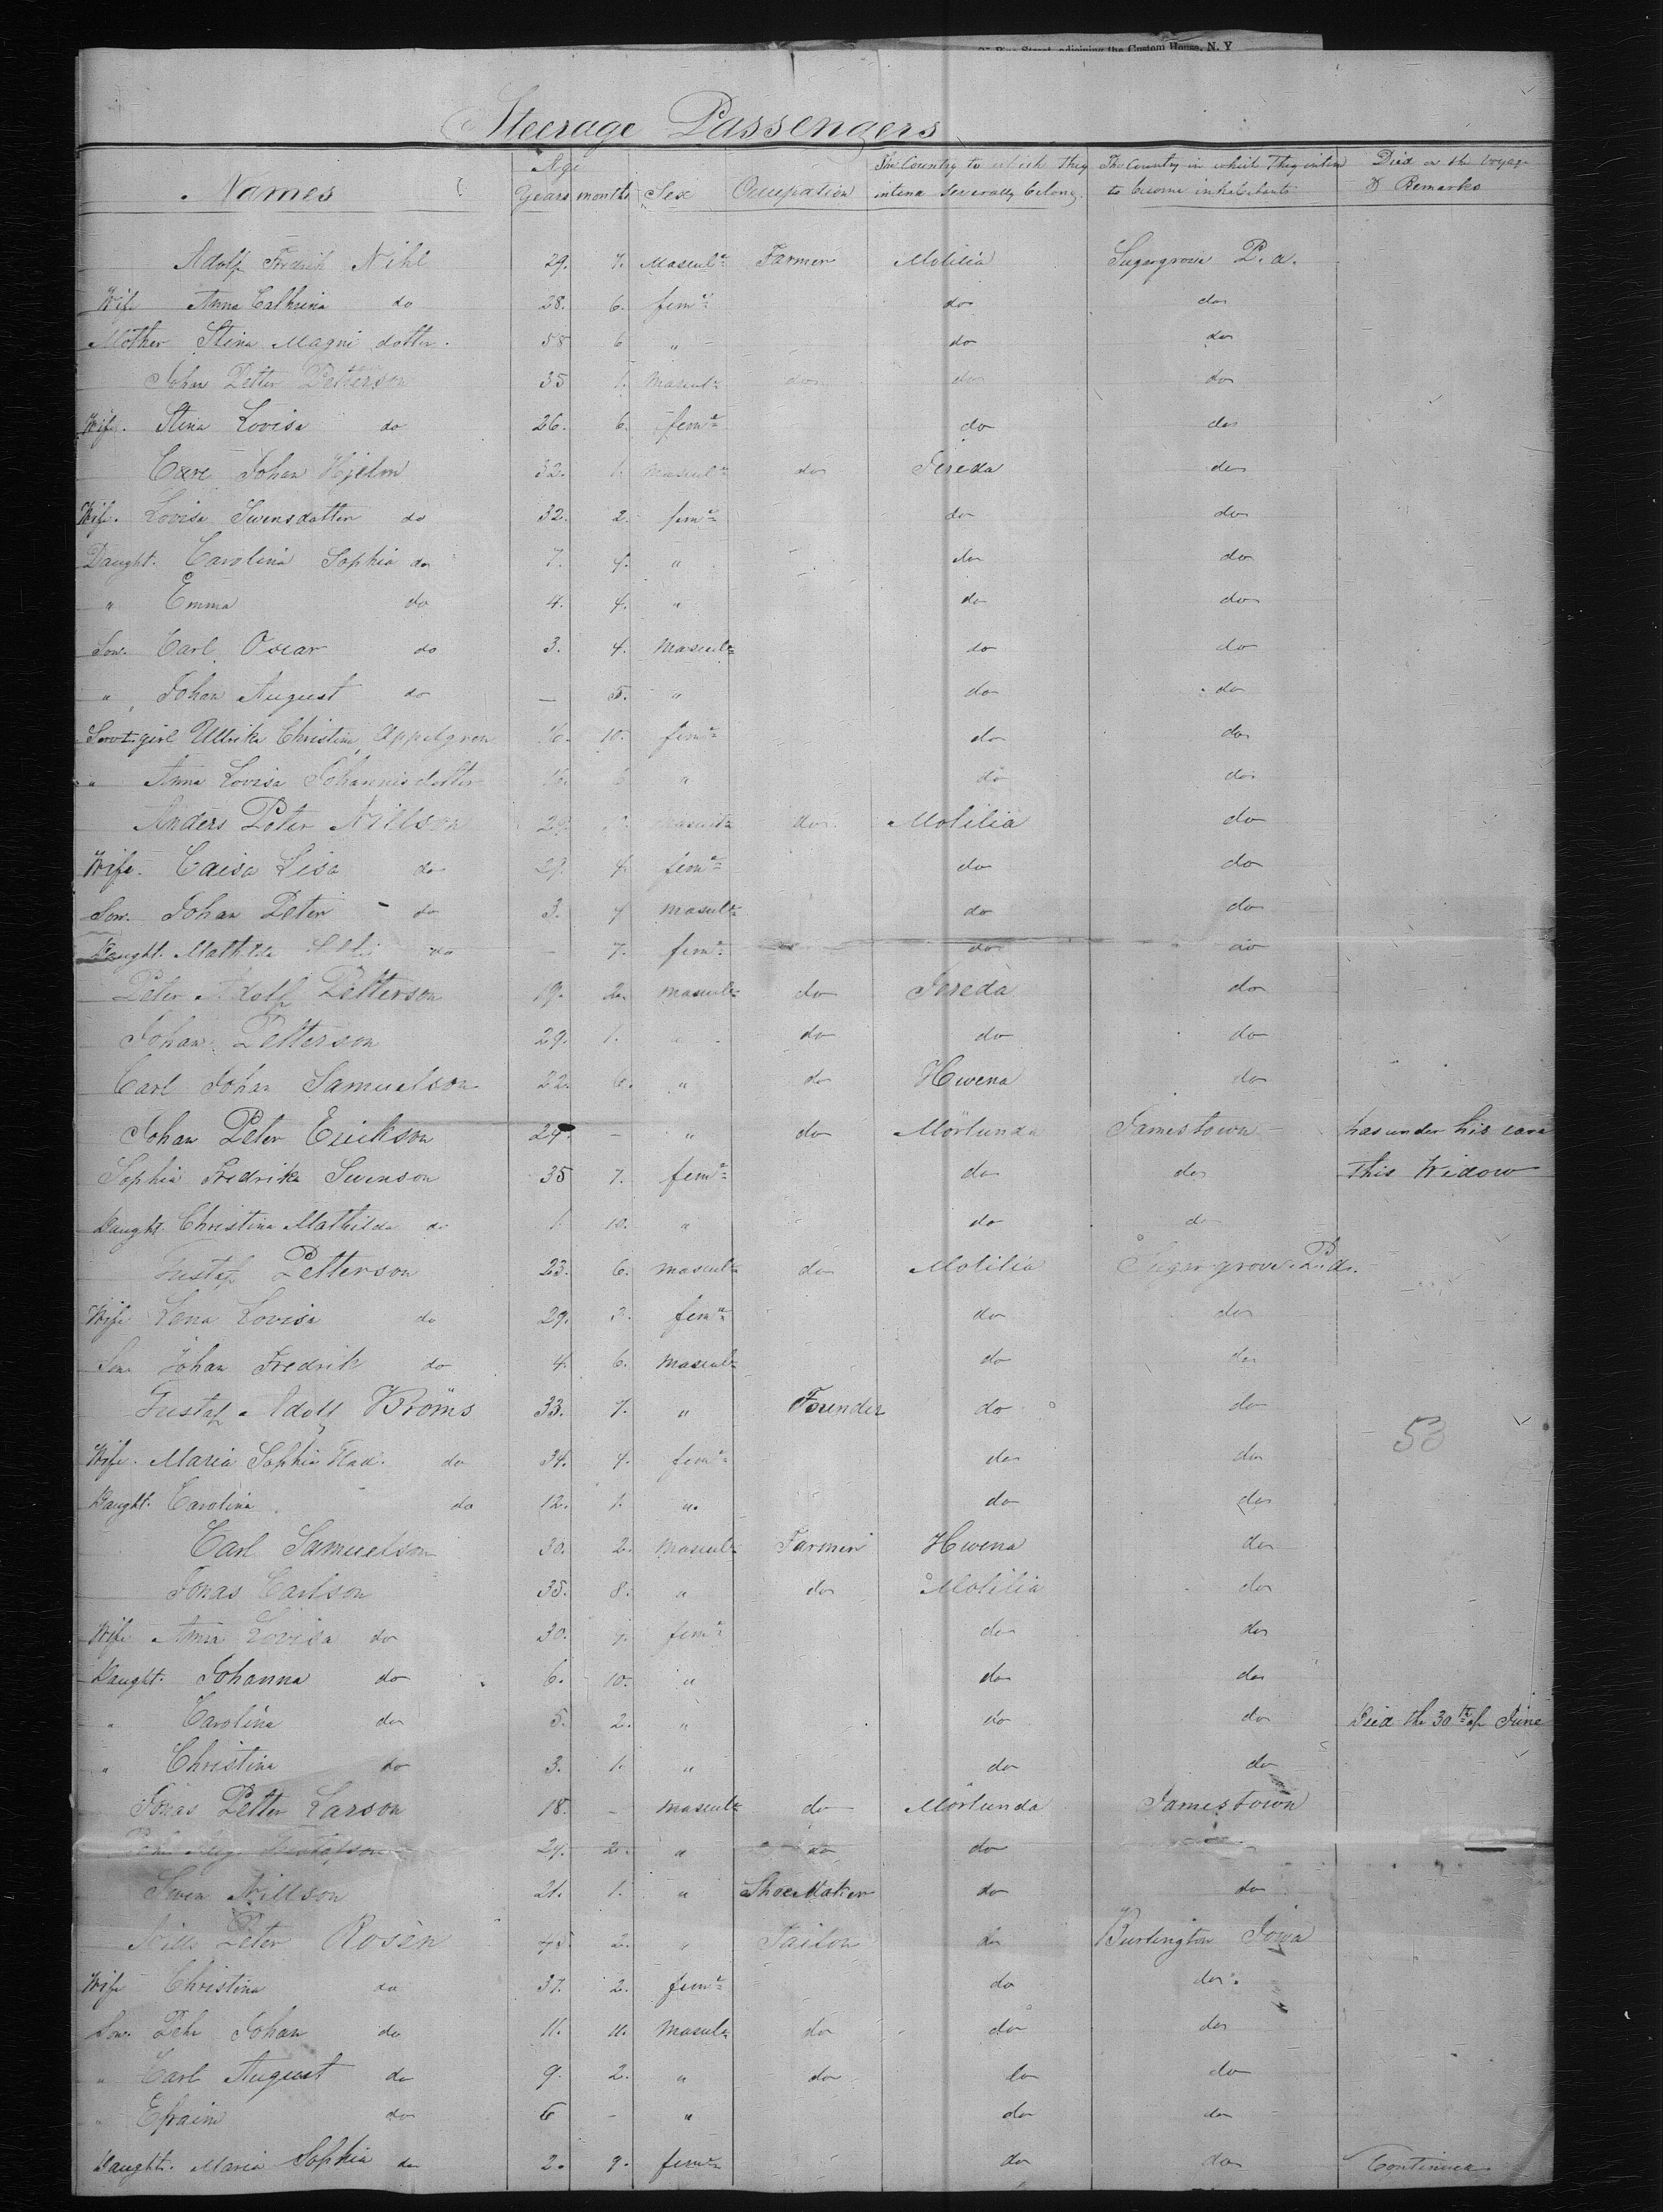 adjoining the Custom House, N. Y
Steerage Passengers
Names Age Years months Sex Occupation The Country to which they intend severally belong. The Country in which They inten to become inhabitants Died on the Voyage & Remarks
Adolf Fredrik Nihl 29. 7. Mascul. Farmer Molilia Sugargrove P. a.
Wife Anna Cathrina do 28. 6. fem. do do
Mother Stina Magni dotter. 58 6 " do do
Johan Petter Petterson 35 1. Mascul. do do do
Wife. Stina Lovisa do 26. 6. fem. do do
Carl Johan Hjelm 32. 1. Mascul. do Jereda do
Wife. Lovisa Swensdotter do 32. 2. fem. do do
Daught. Carolina Sophia do 7. 4. " do do
" Emma do 4. 4. " do do
Son. Carl Oscar do 3. 4. Mascul. do do
" Johan August do — 5. " do do
Servt girl Ullrika Christina Appelgren 10. fem. do do
" Anna Lovisa Johannisdotter 16. " do do
Anders Peter Nillson 29 Mascul. do Molilia do
Wife. Caisa Lisa do 29. 4. fem. do do
Son. Johan Peter do 3. 4 Mascul. do do
Daught. Mathilda do — 7. fem. do do
Peter Adolf Petterson 19. 2. Mascul. do Jereda do
Johan Petterson 29. 1. " do do do
Carl Johan Samuelson 22. 6. " do Hwena do
Johan Peter Erickson 24. — " do Mörlunda Jamestown has under his care
Sophia Fredrika Swenson 35 7. fem. do do this Widow
Daught. Christina Mathilda do 1 10. " do do
Gustaf Petterson 23. 6. Mascul. do Molilia Sugargrove P. a.
Wife Lena Lovisa do 29. 3. fem. do do
Son Johan Fredrik do 4. 6. Mascul. do do
Gustaf Adolf Broms 33. 7. " Founder do do
53
Wife. Maria Sophia do 34. 4. fem. do do
Daught. Carolina do 12. 1. " do do
Carl Samuelson 30. 2. Mascul. Farmer Hwena do
Jonas Carlson 35. 8. " do Molilia do
Wife Anna Lovisa do 30. 4. fem. do do
Daught. Johanna do 6. 10. " do do
" Carolina do 5. 2. " do do Died the 30th of June
" Christina do 3. 1. " do do
Jonas Petter Larson 18. — Mascul. do Mörlunda Jamestown
Gustafson 24. 2. " do do
Swen Nillson 21. 1. " Shoe Maker do do
Nills Peter Rosèn 45 2. " Tailor do Burlington Iowa
Wife Christina do 37. 2. fem. do do
Son. Pehr Johan do 11. 11. Mascul. do do do
" Carl August do 9. 2. " do do do
" Efraim do 6 — " do do
Daught. Maria Sophia do 2. 9. fem. do do Continued